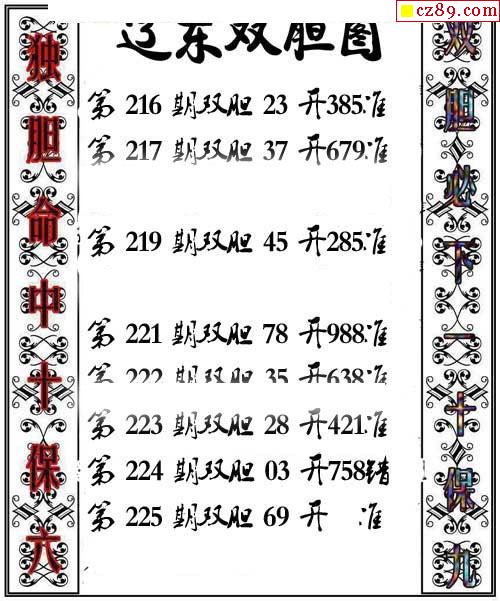 cz89.com
辽东双胆图
独胆命中十保六
双胆必下一十保九
第 216 期双胆 23 开385准
第 217 期双胆 37 开679准
第 219 期双胆 45 开285准
第 221 期双胆 78 开988准
第 222 期双胆 35 开638准
第 223 期双胆 28 开421准
第 224 期双胆 03 开758错
第 225 期双胆 69 开 准